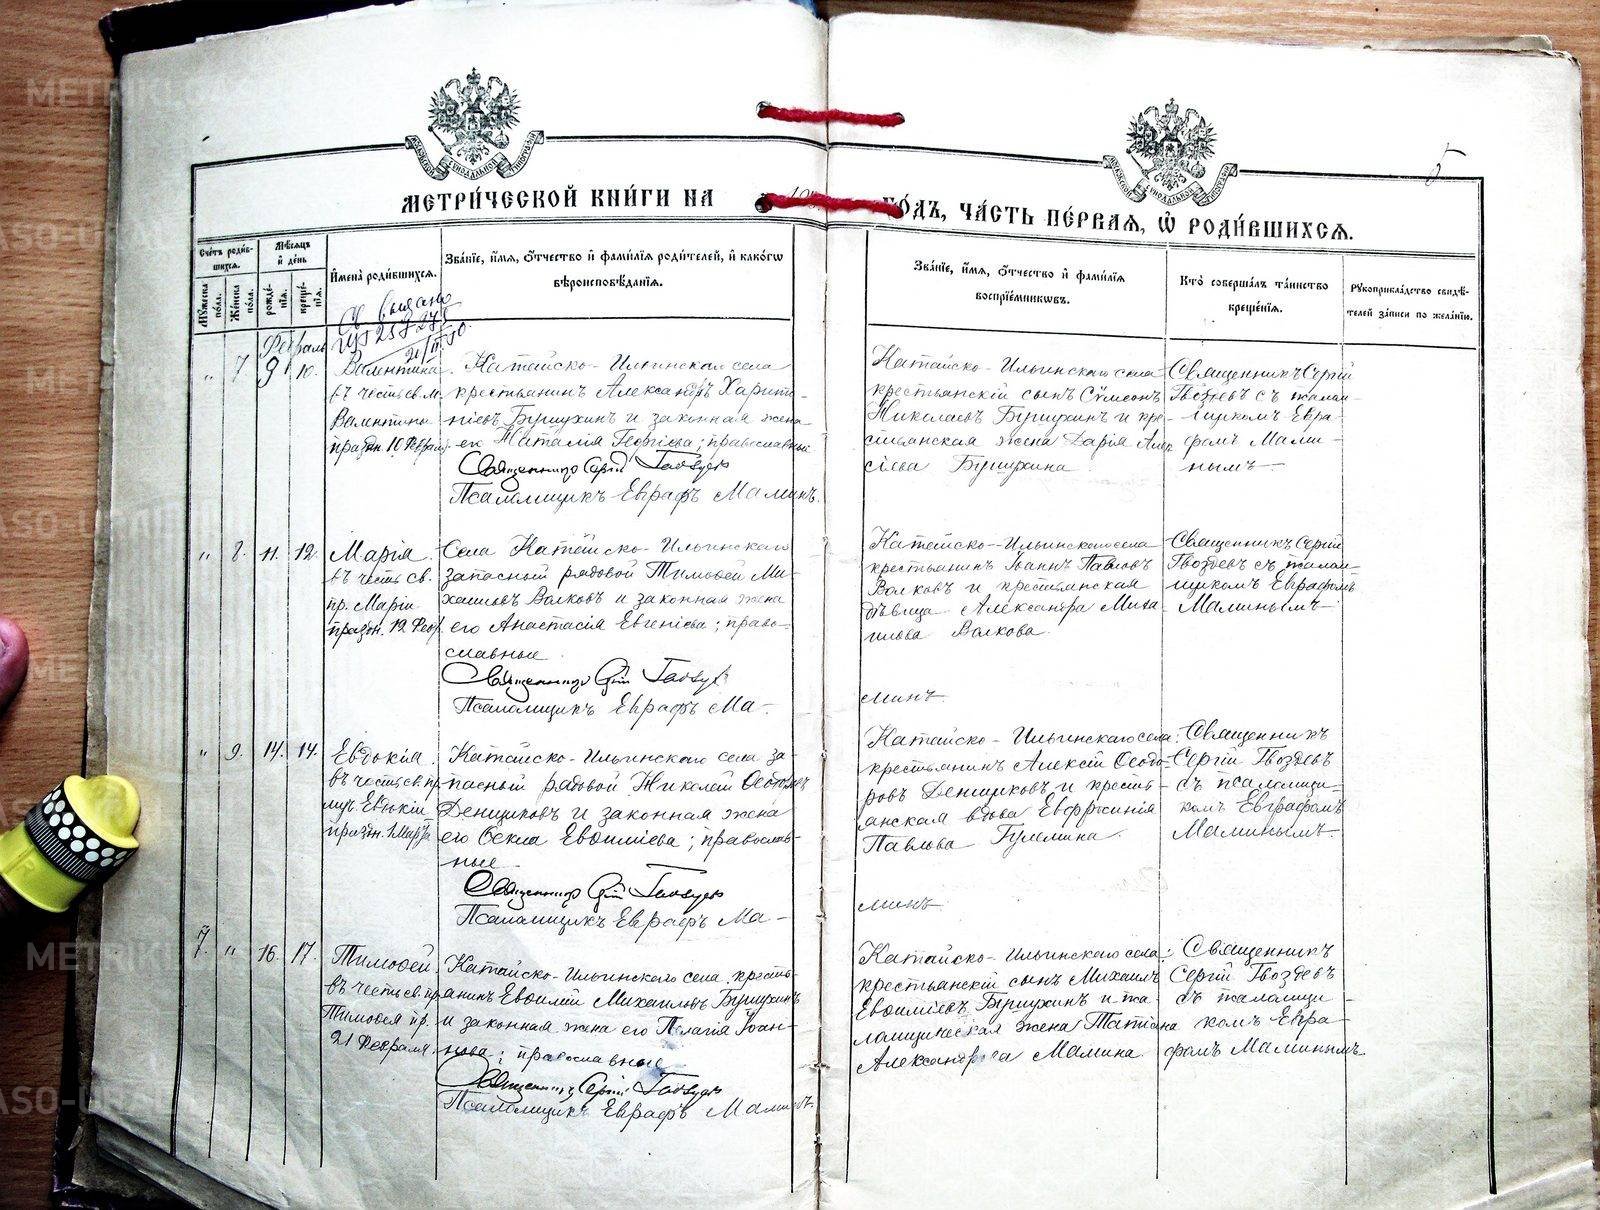 МЕТРИ́ЧЕСКОЙ КНИ́ГИ НА
ГО́ДЪ, ЧА́СТЬ ПЕ́РВАЯ, Ѽ РОДИ́ВШИХСЯ.
5
Сче́тъ роди́в-
шихся.
Му́жеска по́ла.
Же́нска по́ла.
Мѣ́сяцъ
и҆ де́нь
рожде́-
нїя.
креще́-
нїя.
И҆мена̀ роди́вшихся.
Зва́нїе, и҆́мя, ѻ҆́тчество и҆ фами́лїя роди́телей, и҆ како́гѡ
вѣроисповѣ́данїя.
Зва́нїе, и҆́мя, ѻ҆́тчество и҆ фами́лїя
воспрїе́мникѡвъ.
Кто̀ соверша́лъ та́инство
креще́нїя.
Рꙋкоприкла́дство свидѣ́-
телей за́писи по жела́нїю.
Февраль
„ 7 9 10.
Валентина
въ честь св. м.
Валентины
праздн. 10 Февраля
Катайско-Ильинскаго села
крестьянинъ Александръ Харито-
ніевъ Бушухинъ и законная жена
его Наталія Георгіева; православные
Священникъ Сергій Гвоздев
Псаломщикъ Евграфъ Маминъ.
Катайско-Ильинскаго села
крестьянскій сынъ Сѵмеонъ
Николаевъ Бушухинъ и кре-
стьянская жена Дарія Алек-
сіева Бушухина
Священникъ Сергій
Гвоздевъ съ псалом-
щикомъ Евгра-
фомъ Мами-
нымъ
„ 8. 11. 12.
Марія
въ честь св.
пр. Маріи
праздн. 12 Февр.
Села Катайско-Ильинскаго
запасный рядовой Тимоѳей Ми-
хаиловъ Волковъ и законная жена
его Анастасія Евгеніева; право-
славные
Священникъ Сергій Гвоздев
Псаломщикъ Евграфъ Ма-
минъ
Катайско-Ильинскаго села
крестьянинъ Іоаннъ Павловъ
Волковъ и крестьянская
дѣвица Александра Миха-
илова Волкова.
Священникъ Сергій
Гвоздевъ съ псалом-
щикомъ Евграфомъ
Маминымъ
„ 9. 14. 14.
Евдокія
въ честь св. пр.
муч. Евдокіи
праздн. 1 Марта
Катайско-Ильинскаго села за-
пасный рядовой Николай Ѳеодоровъ
Денщиковъ и законная жена
его Ѳекла Евѳиміева; православ-
ные
Священникъ Сергій Гвоздев
Псаломщикъ Евграфъ Ма-
минъ
Катайско-Ильинскаго села
крестьянинъ Алексій Ѳеодо-
ровъ Денщиковъ и кресть-
янская вдова Евфросинія
Павлова
Священникъ
Сергій Гвоздевъ
съ псаломщи-
комъ Евграфомъ
Маминымъ
7. „ 16. 17.
Тимоѳей
въ честь св. пр.
Тимоѳея пр.
21 Февраля
Катайско-Ильинскаго села кресть-
янинъ Евѳимій Михаиловъ Бушухинъ
и законная жена его Пелагія Іоан-
нова; православные
Священникъ Сергій Гвоздев
Псаломщикъ Евграфъ Маминъ.
Катайско-Ильинскаго села
крестьянскій сынъ Михаилъ
Евѳиміевъ Бушухинъ и пса-
ломщическая жена Татіана
Александрова Мамина
Священникъ
Сергій Гвоздевъ
съ псаломщи-
комъ Евгра-
фомъ Маминымъ